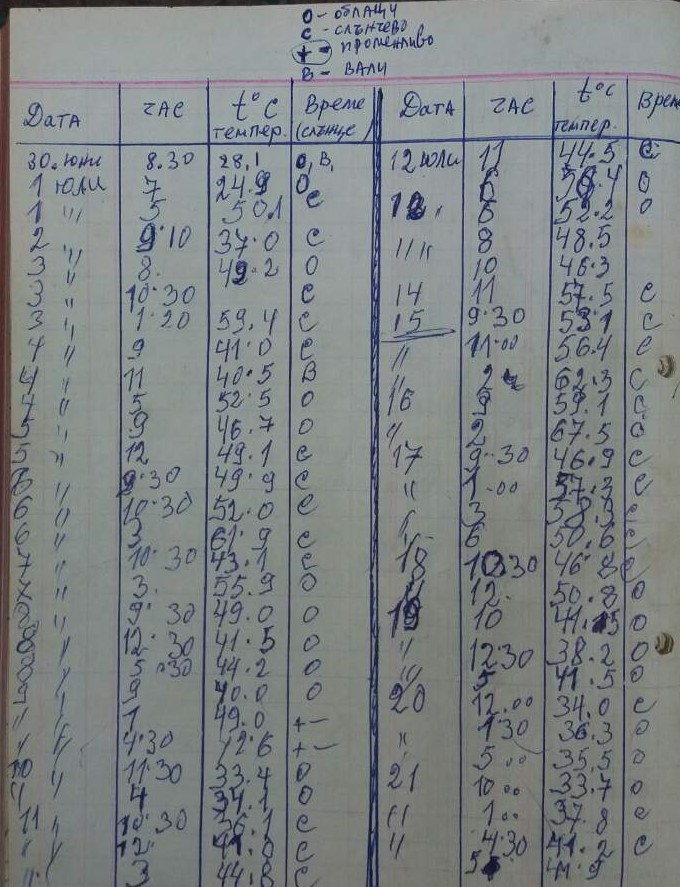 О - ОБЛАЦИ
С - СЛЪНЧЕВО
+ - ПРОМЕНЛИВО
В - ВАЛИ
ДАТА ЧАС t°C Време ДАТА ЧАС t°C Време
темпер. (слънце) темпер.
30. юни 8.30 28,1 О, В, 12 юли 11 44.5 С
1 ЮЛИ 7 24.9 О 6 О
1 " 5 50.1 С " 6 52.2 О
2 " 9.10 37.0 С " " 8 48.5
3 " 8. 49.2 О 10 46.3
3 " 10.30 С 14 11 57.5 С
3 " 1.20 59.4 С 15 9.30 53.1 С
4 " 9 41.0 С " 11.00 56.4 С
4 " 11 40.5 В " 2 62.3 С
" 5 52.5 О 16 9 59.1 С
5 " 9 46.7 О " 2 67.5 С
5 " 12 49.1 С 17 9.30 46.9 С
6 " 9.30 49.9 С " 1.00 57.3 С
6 " 10.30 52.0 С " 3 С
6 " 3 61.9 С 6 50.6 С
7 " 10.30 43.1 С 18 10.30 46.8 С
" 3. 55.9 О 12. 50.8 О
" 9.30 49.0 О 19 10 О
" 12.30 41.5 О " 12.30 38.2 О
" 5.30 44.2 О " 5 41.5 О
9 40.0 О 20 12.00 34.0 С
" 1 49.0 +- 1.30 36.3 О
" 4.30 +- " 5.00 35.5 О
10 " 11.30 33.4 О 21 10.00 33.7 О
" 4 34.1 О " 1.00 37.8 С
11 " 10.30 36.1 С " 4.30 41.2 С
" 12. 41.0 С 41.9
" 3 44.8 С